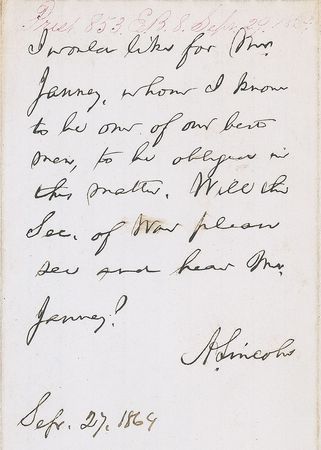 853. E.B. 8. Sept. 29. 1864
I would like for Mr.
Janney, whom I know
to be one of our best
men, to be obliged in
this matter. Will the
Sec. of War please
see and hear Mr.
Janney?
A. Lincoln
Sep. 27, 1864